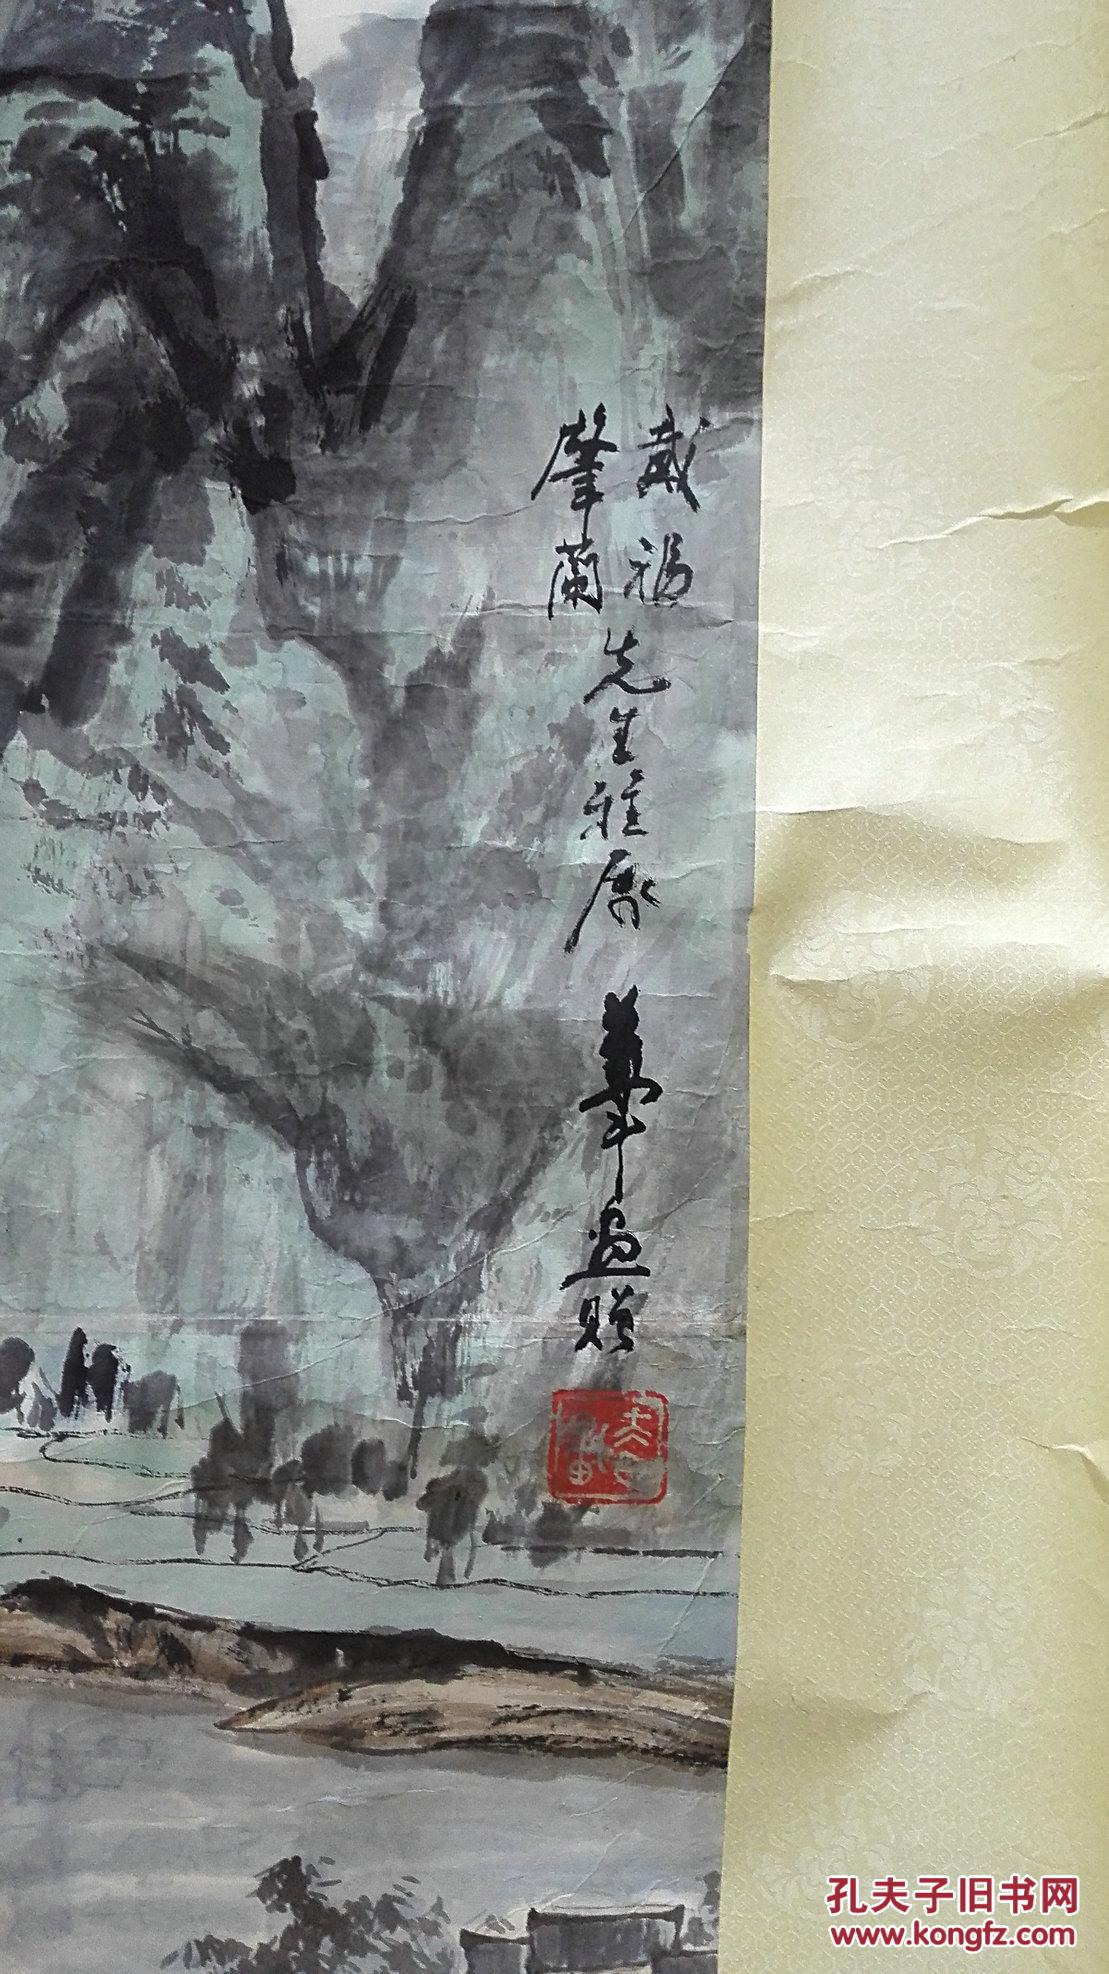 戴福
肇蘭
先生雅属
画贈
孔夫子旧书网
www.kongfz.com